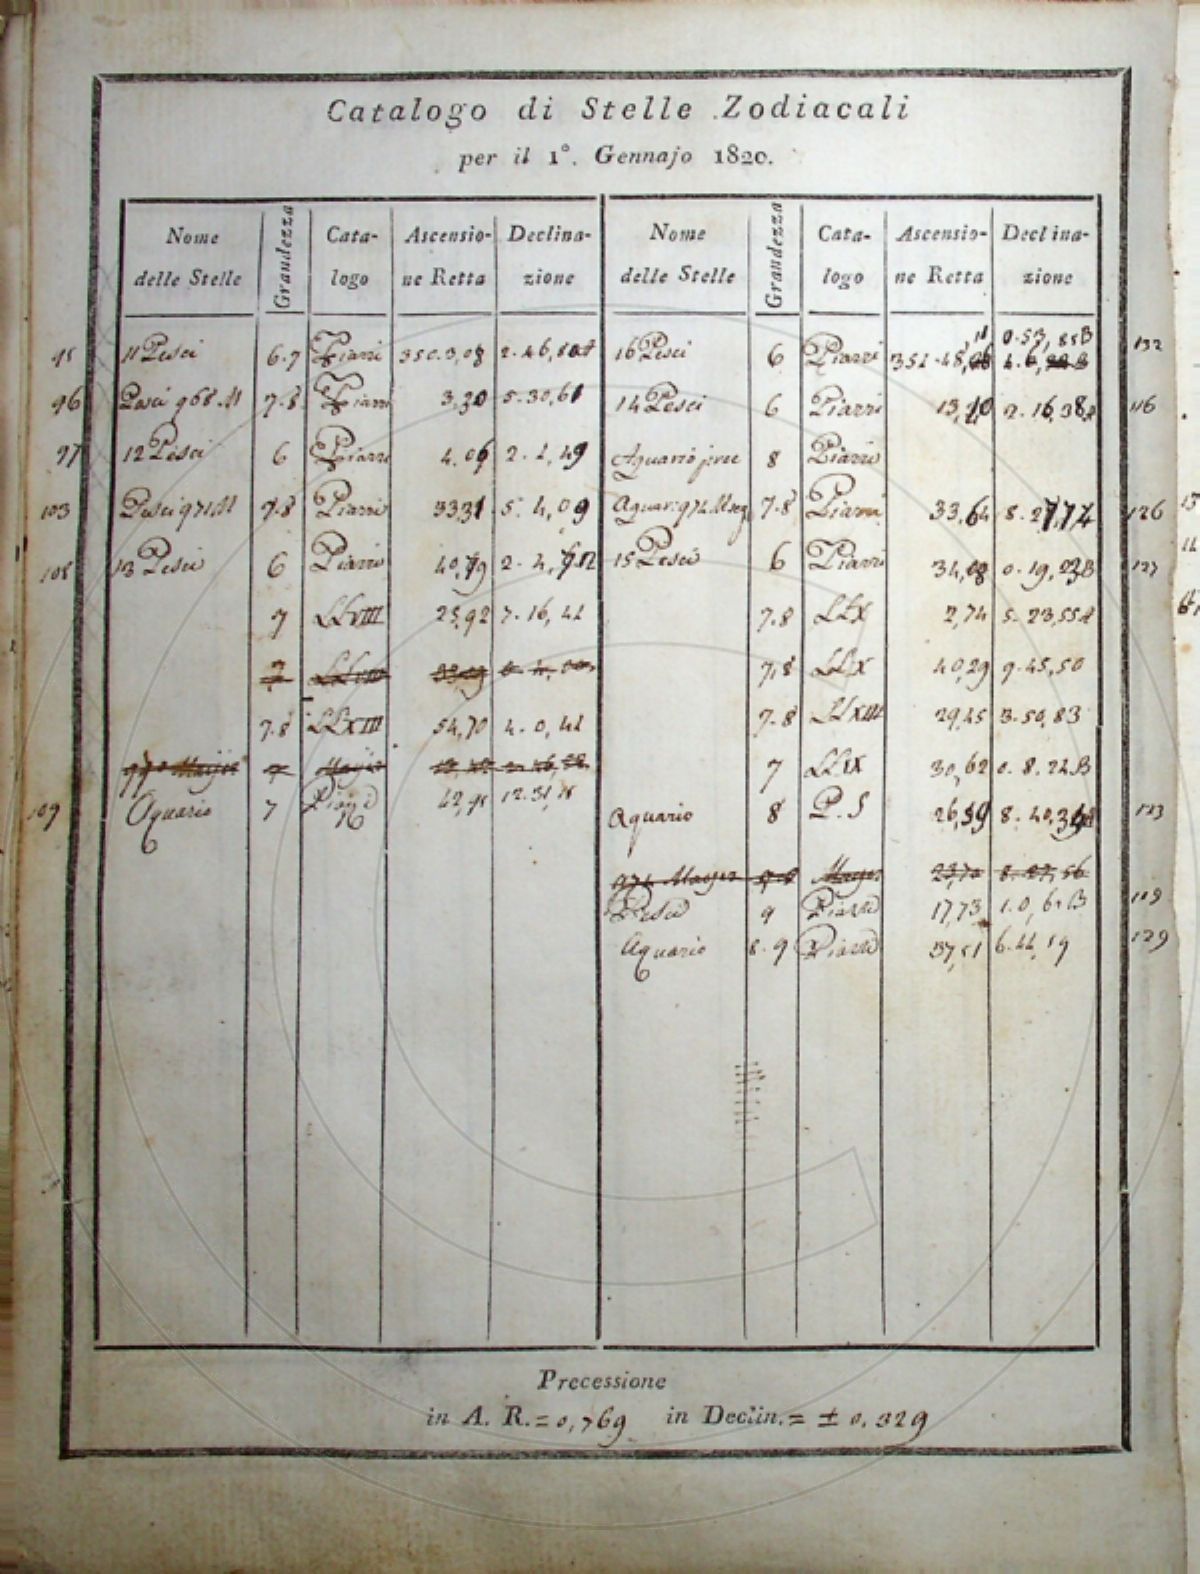 Catalogo di Stelle Zodiacali
per il 1°. Gennajo 1820.
Nome delle Stelle Grandezza Cata-logo Ascensio-ne Retta Declina-zione Nome delle Stelle Grandezza Cata-logo Ascensio-ne Retta Declina-zione
95 11 Pesci 6.7 Piazzi 350.3,08 2.46, 16 Pesci 6 Piazzi 351.48, 0.53,85B 132
96 Pesci 968.M 7.8 Piazzi 3,20 5.30,61 14 Pesci 6 Piazzi 13, 2.16,38 116
97 12 Pesci 6 Piazzi 4.06 2.2,49 Aquario prec 8 Piazzi
103 Pesci 971M 7.8 Piazzi 33,31 5.4,09 Aquar. 974 7.8 Piazzi 33,64 8.27,74 126
108 13 Pesci 6 Piazzi 40,79 2.4, 15 Pesci 6 Piazzi 34,08 0.19,23B 127
7 LLVIII 25,92 7.16,41 7.8 LLX 2,74 5.23,55A
7.8 LLX 40,29 9.45,50
7.8 LLXIII 54,70 4.0,41 7.8 LLXIII 29,45 3.50,83
970 Mayer 7 Mayer 7 LLIX 30,62 0.8,22B
109 Aquario 7 Piazzi 16 42,98 12.31, Aquario 8 P.S 26,59 8.40, 123
974 Mayer 7.8 Mayer 23,70 8.27,56
Pesci 9 Piazzi 17,73 1.0,61B 119
Aquario 8.9 Piazzi 37,51 6.44,19 129
Precessione
in A. R. = 0,769 in Declin. = ± 0,329